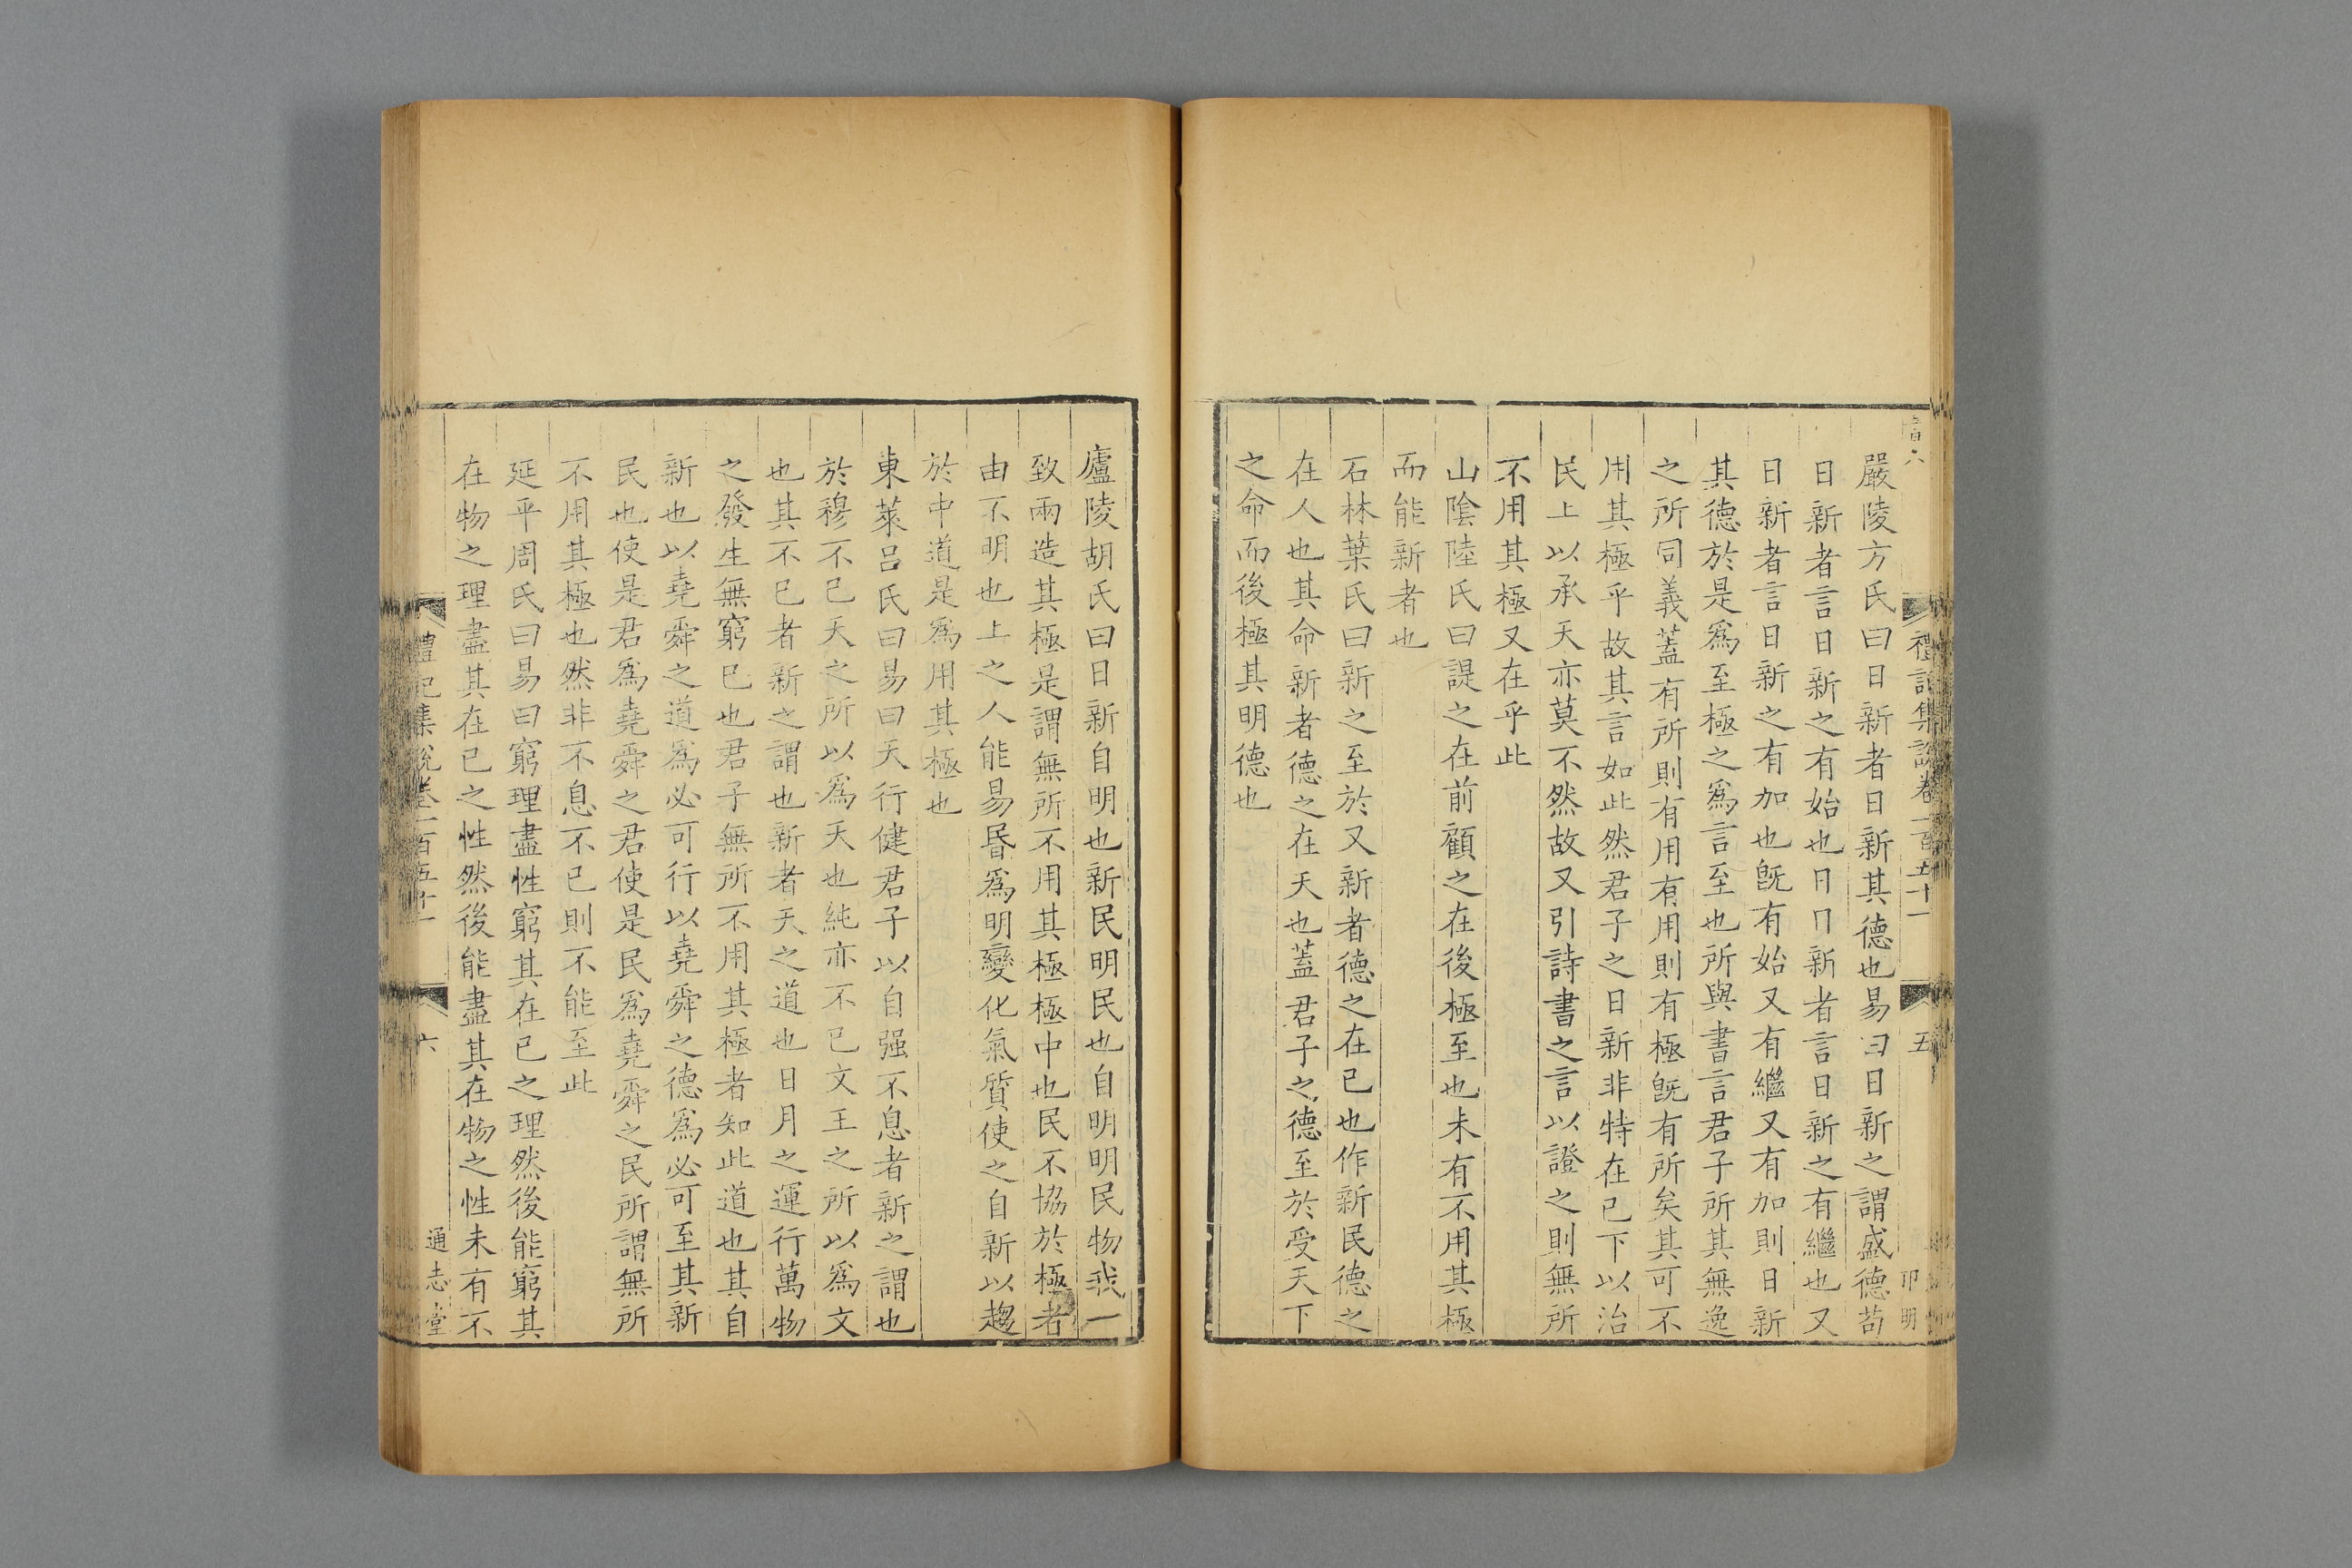 禮記集說卷一百五十一
五
嚴陵方氏曰日新者日新其德也易曰日新之謂盛德苟
日新者言日新之有始也日日新者言日新之有繼也又
日新者言日新之有加也旣有始又有繼又有加則日新
其德於是爲至極之爲言至也所與書言君子所其無逸
之所同義蓋有所則有用有用則有極旣有所矣其可不
用其極乎故其言如此然君子之日新非特在已下以治
民上以承天亦莫不然故又引詩書之言以證之則無所
不用其極又在乎此
山陰陸氏曰諟之在前顧之在後極至也未有不用其極
而能新者也
石林葉氏曰新之至於又新者德之在已也作新民德之
在人也其命新者德之在天也蓋君子之德至於受天下
之命而後極其明德也
廬陵胡氏曰日新自明也新民明民也自明明民物我一
致兩造其極是謂無所不用其極極中也民不協於極者
由不明也上之人能易昬爲明變化氣質使之自新以趨
於中道是爲用其極也
東萊呂氏曰易曰天行健君子以自强不息者新之謂也
於穆不已天之所以爲天也純亦不已文王之所以爲文
也其不已者新之謂也新者天之道也日月之運行萬物
之發生無窮已也君子無所不用其極者知此道也其自
新也以堯舜之道爲必可行以堯舜之德爲必可至其新
民也使是君爲堯舜之君使是民爲堯舜之民所謂無所
不用其極也然非不息不已則不能至此
延平周氏曰易曰窮理盡性窮其在已之理然後能窮其
在物之理盡其在已之性然後能盡其在物之性未有不
禮記集說卷一百五十一
六
通志堂